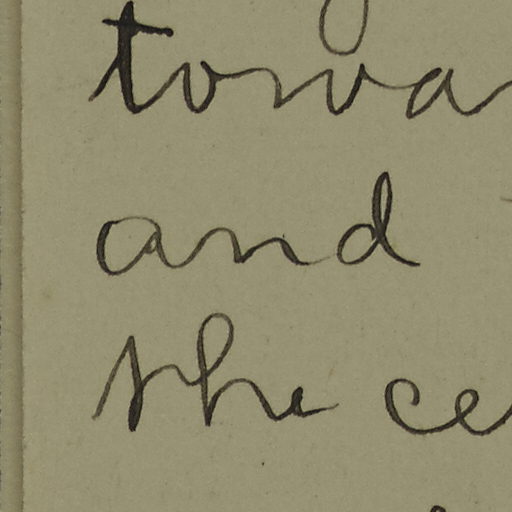 towa
and
the ce